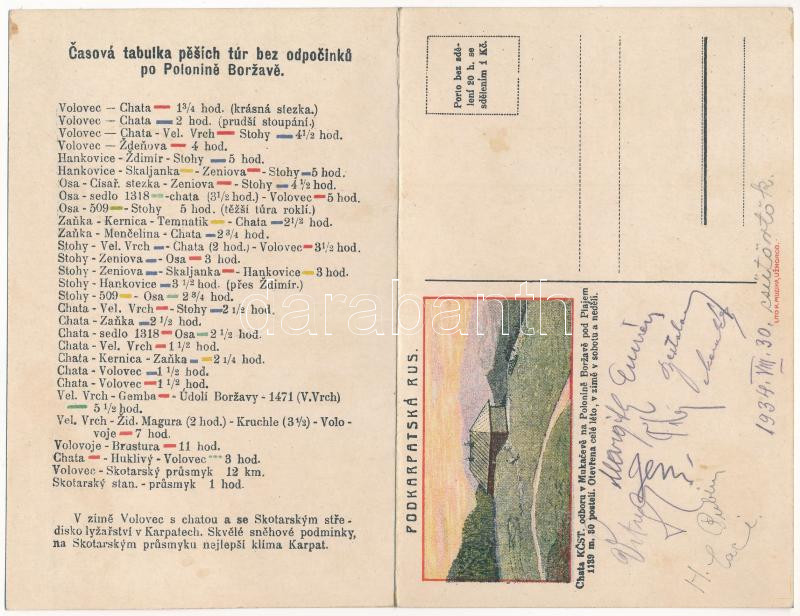 Časová tabulka pěších túr bez odpočinků
po Polonině Boržavě.
Volovec — Chata 1 3/4 hod. (krásná stezka.)
Volovec — Chata 2 hod. (prudší stoupání.)
Volovec — Chata - Vel. Vrch Stohy 4 1/2 hod.
Volovec — Ždeňova 4 hod.
Hankovice - Ždimír - Stohy 5 hod.
Hankovice - Skaljanka - Zeniova - Stohy 5 hod.
Osa - Císař. stezka - Zeniova - Stohy 4 1/2 hod.
Osa - sedlo 1318 - chata (3 1/2 hod.) - Volovec 5 hod.
Osa - 509 - Stohy 5 hod. (těžší túra roklí.)
Zaňka - Kernica - Temnatik - Chata 2 1/2 hod.
Zaňka - Menčelina - Chata 2 3/4 hod.
Stohy - Vel. Vrch - Chata (2 hod.) - Volovec 3 1/2 hod.
Stohy - Zeniova - Osa 3 hod.
Stohy - Zeniova - Skaljanka - Hankovice 3 hod.
Stohy - Hankovice 3 1/2 hod. (přes Ždimír.)
Stohy - 509 - Osa 2 3/4 hod.
Chata - Vel. Vrch - Stohy 2 1/2 hod.
Chata - Zaňka 2 1/2 hod.
Chata - sedlo 1318 - Osa 2 1/2 hod.
Chata - Vel. Vrch 1 1/2 hod.
Chata - Kernica - Zaňka 2 1/4 hod.
Chata - Volovec 1 1/2 hod.
Chata - Volovec 1 1/2 hod.
Vel. Vrch - Gemba - Údolí Boržavy - 1471 (V.Vrch)
5 1/2 hod.
Vel. Vrch - Žid. Magura (2 hod.) - Kruchle (3 1/2) - Volo-
voje 7 hod.
Volovoje - Brustura 11 hod.
Chata - Huklivý - Volovec 3 hod.
Volovec - Skotarský průsmyk 12 km.
Skotarský stan. - průsmyk 1 hod.
V zimě Volovec s chatou a se Skotarským stře-
disko lyžařství v Karpatech. Skvělé sněhové podminky,
na Skotarským průsmyku nejlepší klíma Karpat.
Porto bez sdě-
lení 20 h. se
sdělením 1 Kč.
PODKARPATSKÁ RUS.
Chata KČST. odboru v Mukačevě na Polonině Boržavě pod Plajem
1139 m, 30 postelí. Otevřena celé léto, v zimě v sobotu a neděli.
LITO K. MUDIHA, UŽHOROD.
1934. VIII. 30. csütörtök.
Margit
darabanth